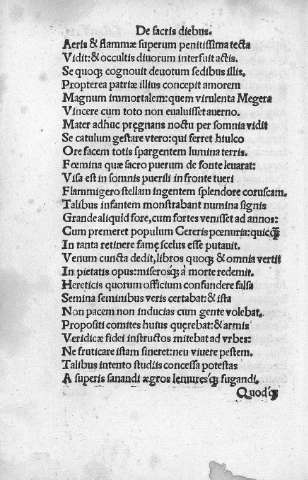 De sacris diebus.
Aeris & flammæ superum penitissima tecta
Vidit: & occultis diuorum interfuit actis.
Se quoq; cognouit deuotum sedibus illis.
Propterea patriæ illius concepit amorem
Magnum immortalem: quem virulenta Megera
Vincere cum toto non eualuisset auerno.
Mater adhuc pregnans noctu per somnia vidit
Se catulum gestare vtero: qui ferret hiulco
Ore facem totis spargentem lumina terris.
Fœmina quæ sacro puerum de fonte leuarat:
Visa est in somnis puerili in fronte tueri
Flammigero stellam ingentem splendore coruscam.
Talibus infantem monstrabant numina signis
Grande aliquid fore, cum fortes venisset ad annos:
Cum premeret populum Cereris pœnuria: quicq̃
In tanta retinere fame scelus esse putauit.
Venum cuncta dedit, libros quoq; & omnia vertit
In pietatis opus: miserosq; a morte redemit.
Hereticis quorum officium confundere falsa
Semina seminibus veris certabat: & ista
Non pacem non inducias cum gente volebat.
Propositi comites huius querebat: & armis
Veridicæ fidei instructos mitebat ad vrbes:
Ne fruticare istam sineret: neu viuere pestem.
Talibus intento studiis concessa potestas
A superis sanandi ægros lemuresq; fugandi.
Quodq;